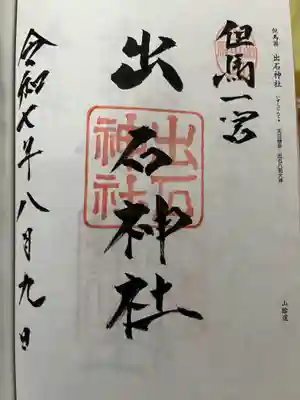 但馬国 出石神社
山陰道
但馬一宮
出石神社
出石
神社
令和七年八月九日